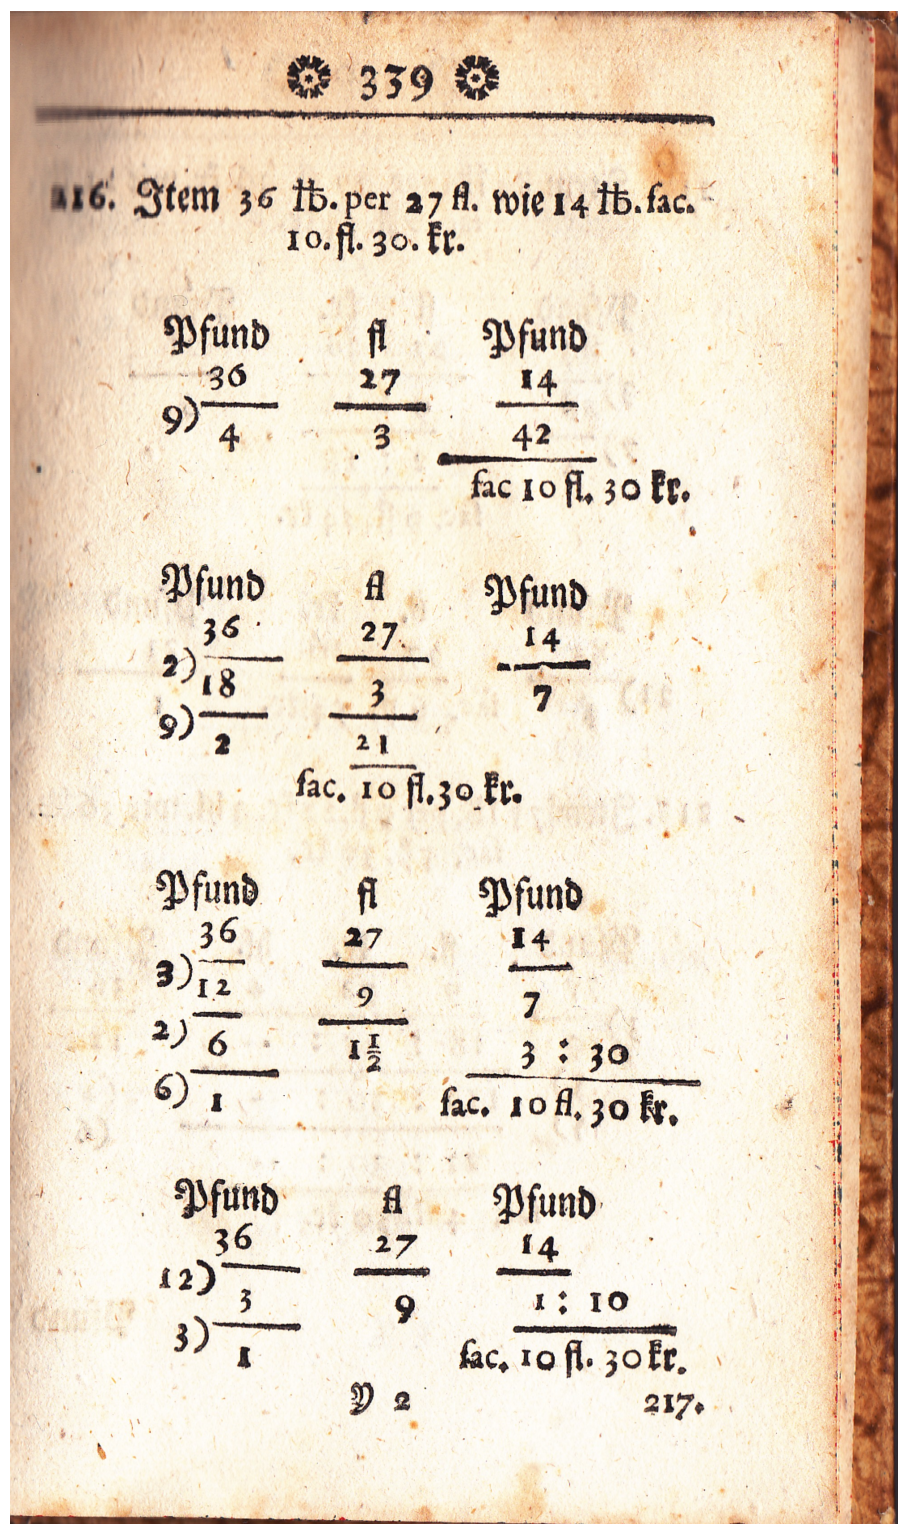 339
216. Item 36 ℔. per 27 fl. wie 14 ℔. fac.
10. fl. 30. kr.
Pfund fl Pfund
36 27 14
9) 4 3 42
fac 10 fl. 30 kr.
Pfund fl Pfund
36 27 14
2) 18 3 7
9) 2 21
fac. 10 fl. 30 kr.
Pfund fl Pfund
36 27 14
3) 12 9 7
2) 6 1 1/2 3 : 30
6) 1 fac. 10 fl. 30 kr.
Pfund fl Pfund
36 27 14
12) 3 9 1 : 10
3) 1 fac. 10 fl. 30 kr.
Y 2 217.